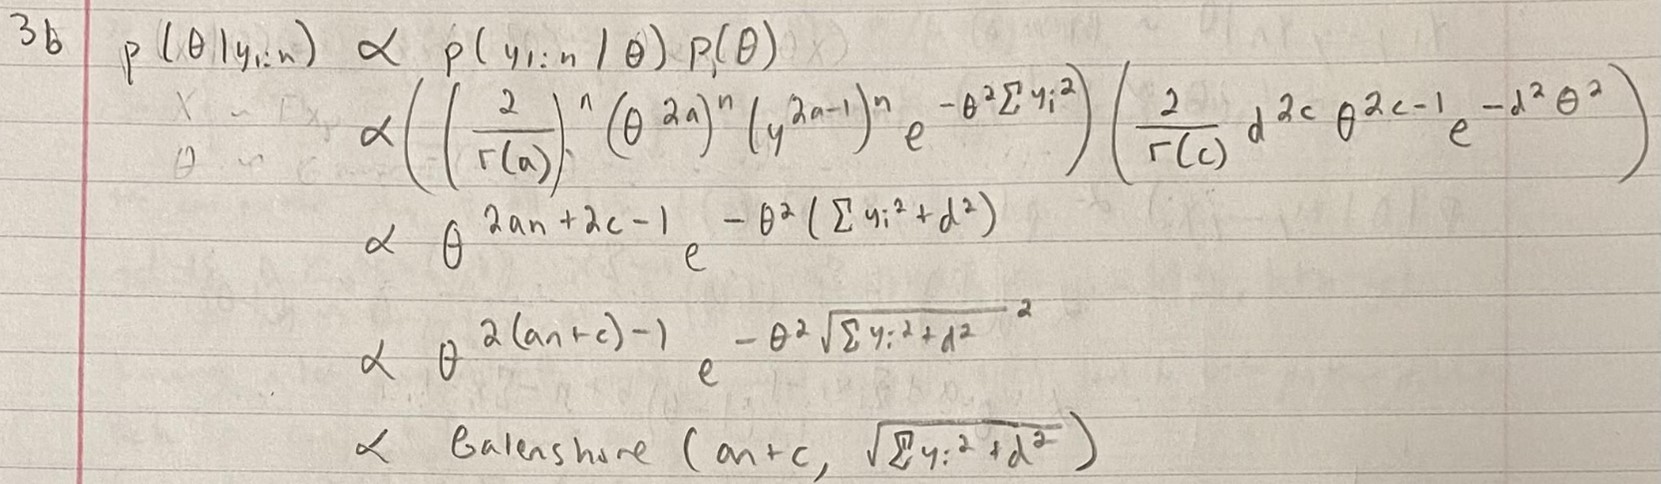 3b p(θ|y₁:ₙ) ∝ p(y₁:ₙ|θ) p(θ)
∝ ((2/Γ(a))ⁿ (θ²ᵃ)ⁿ (y²ᵃ⁻¹)ⁿ e^(-θ² Σ yᵢ²)) (2/Γ(c) d²ᶜ θ²ᶜ⁻¹ e^(-d² θ²))
∝ θ^(2an + 2c - 1) e^(-θ² (Σ yᵢ² + d²))
∝ θ^(2(an+c) - 1) e^(-θ² √(Σ yᵢ² + d²)²)
∝ Galenshore (an+c, √(Σ yᵢ² + d²))